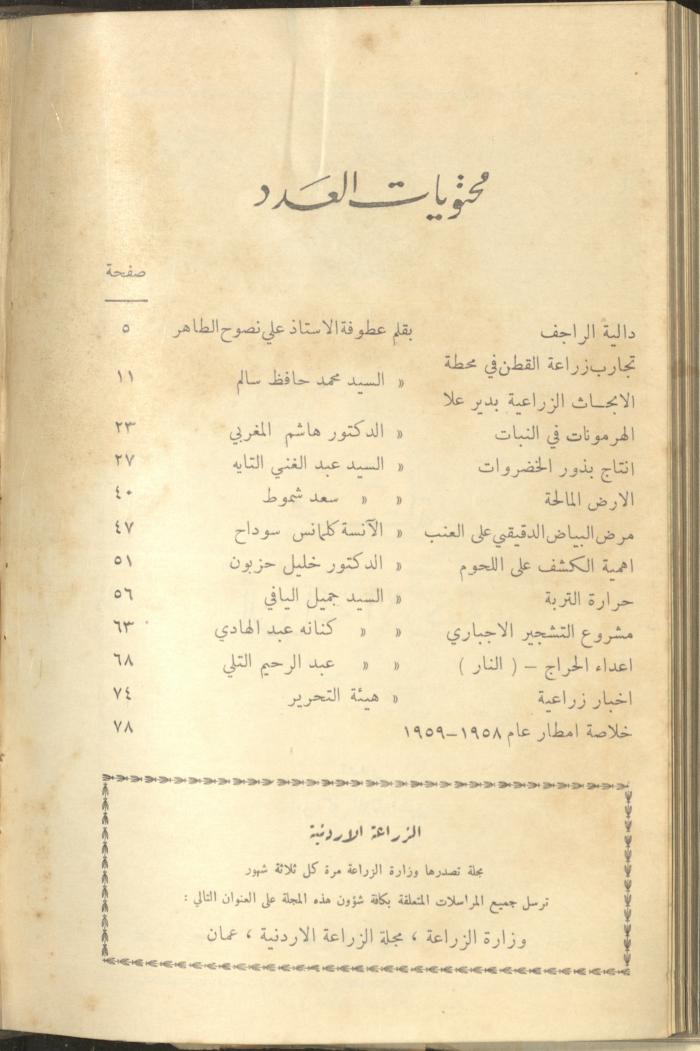 محتويات العدد
صفحة
دالية الراجف بقلم عطوفة الاستاذ علي نصوح الطاهر ٥
تجارب زراعة القطن في محطة
الابحاث الزراعية بدير علا » السيد محمد حافظ سالم ١١
الهرمونات في النبات » الدكتور هاشم المغربي ٢٣
انتاج بذور الخضروات » السيد عبد الغني التايه ٢٧
الارض المالحة » » سعد شموط ٤٠
مرض البياض الدقيقي على العنب » الآنسة كلمانس سوداح ٤٧
اهمية الكشف على اللحوم » الدكتور خليل حزبون ٥١
حرارة التربة » السيد جميل اليافي ٥٦
مشروع التشجير الاجباري » » كنانه عبد الهادي ٦٣
اعداء الحراج – ( النار ) » » عبد الرحيم التلي ٦٨
اخبار زراعية » هيئة التحرير ٧٤
خلاصة امطار عام ١٩٥٨–١٩٥٩ ٧٨
الزراعة الاردنية
مجلة تصدرها وزارة الزراعة مرة كل ثلاثة شهور
ترسل جميع المراسلات المتعلقة بكافة شؤون هذه المجلة على العنوان التالي :
وزارة الزراعة ، مجلة الزراعة الاردنية ، عمان